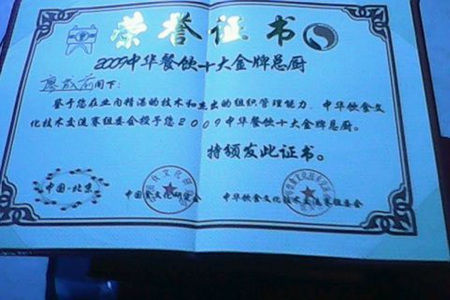 荣誉证书
2009中华餐饮十大金牌总厨
阁下:
鉴于您在业内精湛的技术和杰出的组织管理能力,中华饮食文
化技术交流赛组委会授予您2009中华餐饮十大金牌总厨。
特颁发此证书。
中国·北京
中国 文化研究会 中华饮食文化技术交流赛组委会